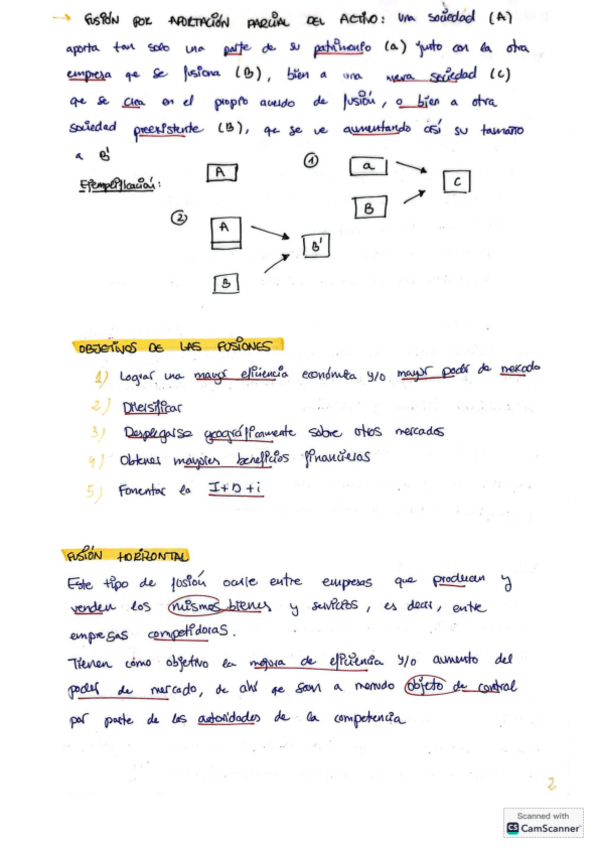 → FUSIÓN POR APORTACIÓN PARCIAL DEL ACTIVO: una sociedad (A)
aporta tan solo una parte de su patrimonio (a) junto con la otra
empresa qe se fusiona (B), bien a una nueva sociedad (C)
qe se crea en el propio acuerdo de fusión, o bien a otra
sociedad preexistente (B), qe se ve aumentando así su tamaño
a B'
Ejemplificación:
A
① a
B
C
② A
B
B'
OBJETIVOS DE LAS FUSIONES
1) Lograr una mayor eficiencia económica y/o mayor poder de mercado
2) Diversificar
3) Desplegarse geográficamente sobre otros mercados
4) Obtener mayores beneficios financieros
5) Fomentar la I+D+i
FUSIÓN HORIZONTAL
Este tipo de fusión ocurre entre empresas que producen y
venden los mismos bienes y servicios, es decir, entre
empresas competidoras.
Tienen cómo objetivo la mejora de eficiencia y/o aumento del
poder de mercado, de ahí qe sean a menudo objeto de control
por parte de las autoridades de la competencia
2
Scanned with
CS CamScanner